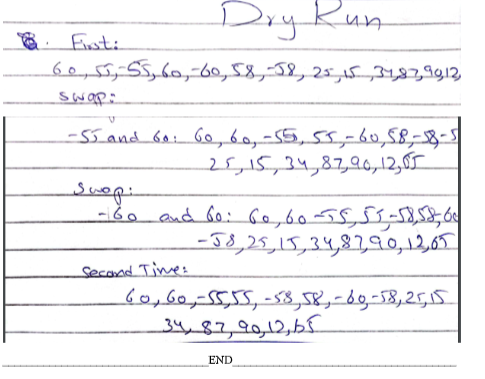 Dry Run
First:
60, 55, -55, 60, -60, 58, -58, 25, 15, 34, 87, 90, 12,
swap:
-55 and 60: 60, 60, -55, 55, -60, 58, -58 -5
25, 15, 34, 87, 90, 12, 65
Swap:
-60 and 60: 60, 60 -55, 55, -58, 58, -60
-58, 25, 15, 34, 87, 90, 12, 65
Second Time:
60, 60, -55, 55, -58, 58, -60, -58, 25, 15
34, 87, 90, 12, 65
END